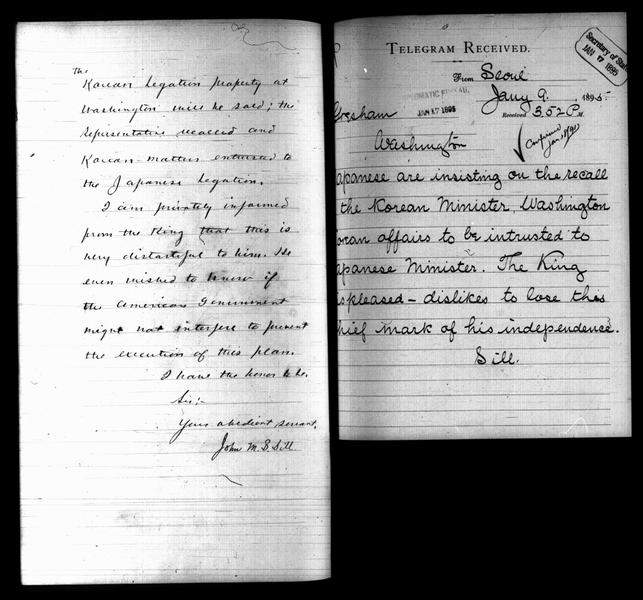 The
Korean Legation property at
Washington will be sold; the
representative recalled and
Korean matters entrusted to
the Japanese Legation.
I am privately informed
from the King that this is
very distasteful to him. He
even wished to know if
the American Government
might not interfere to prevent
the execution of this plan.
I have the honor to be,
Sir:-
Your obedient servant,
John M. B. Sill.
TELEGRAM RECEIVED.
From Seoul
Secretary of State
JAN 17 1895
JAN 17 1895
Jany 9. 1895.
Received 3.52 P.M.
Gresham
Washington
Confirmed
apanese are insisting on the recall
the Korean Minister, Washington
orean affairs to be intrusted to
apanese Minister. The King
spleased - dislikes to lose this
hief mark of his independence.
Sill.